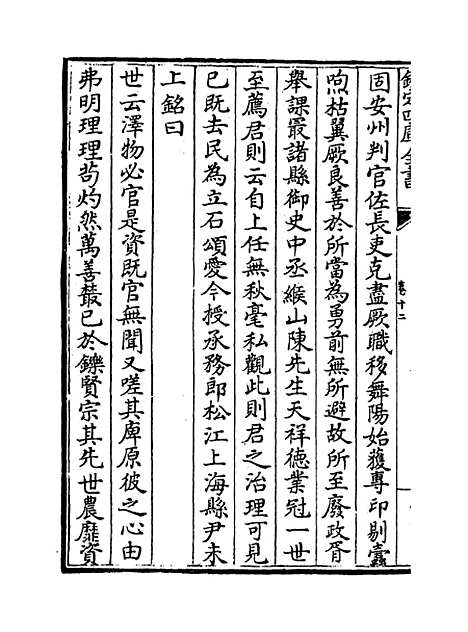 欽定四庫全書
卷十二
固安州判官佐長吏克盡厥職移舞陽始獲專印剔蠹
呴枯翼厥良善於所當為勇前無所避故所至廢政胥
舉課最諸縣御史中丞緱山陳先生天祥德業冠一世
至薦君則云自上任無秋毫私觀此則君之治理可見
已既去民為立石頌愛今授承務郎松江上海縣尹未
上銘曰
世云澤物必官是資既官無聞又嗟其庳原彼之心由
弗明理理苟灼然萬善蓑已於鑠賢宗其先世農靡資